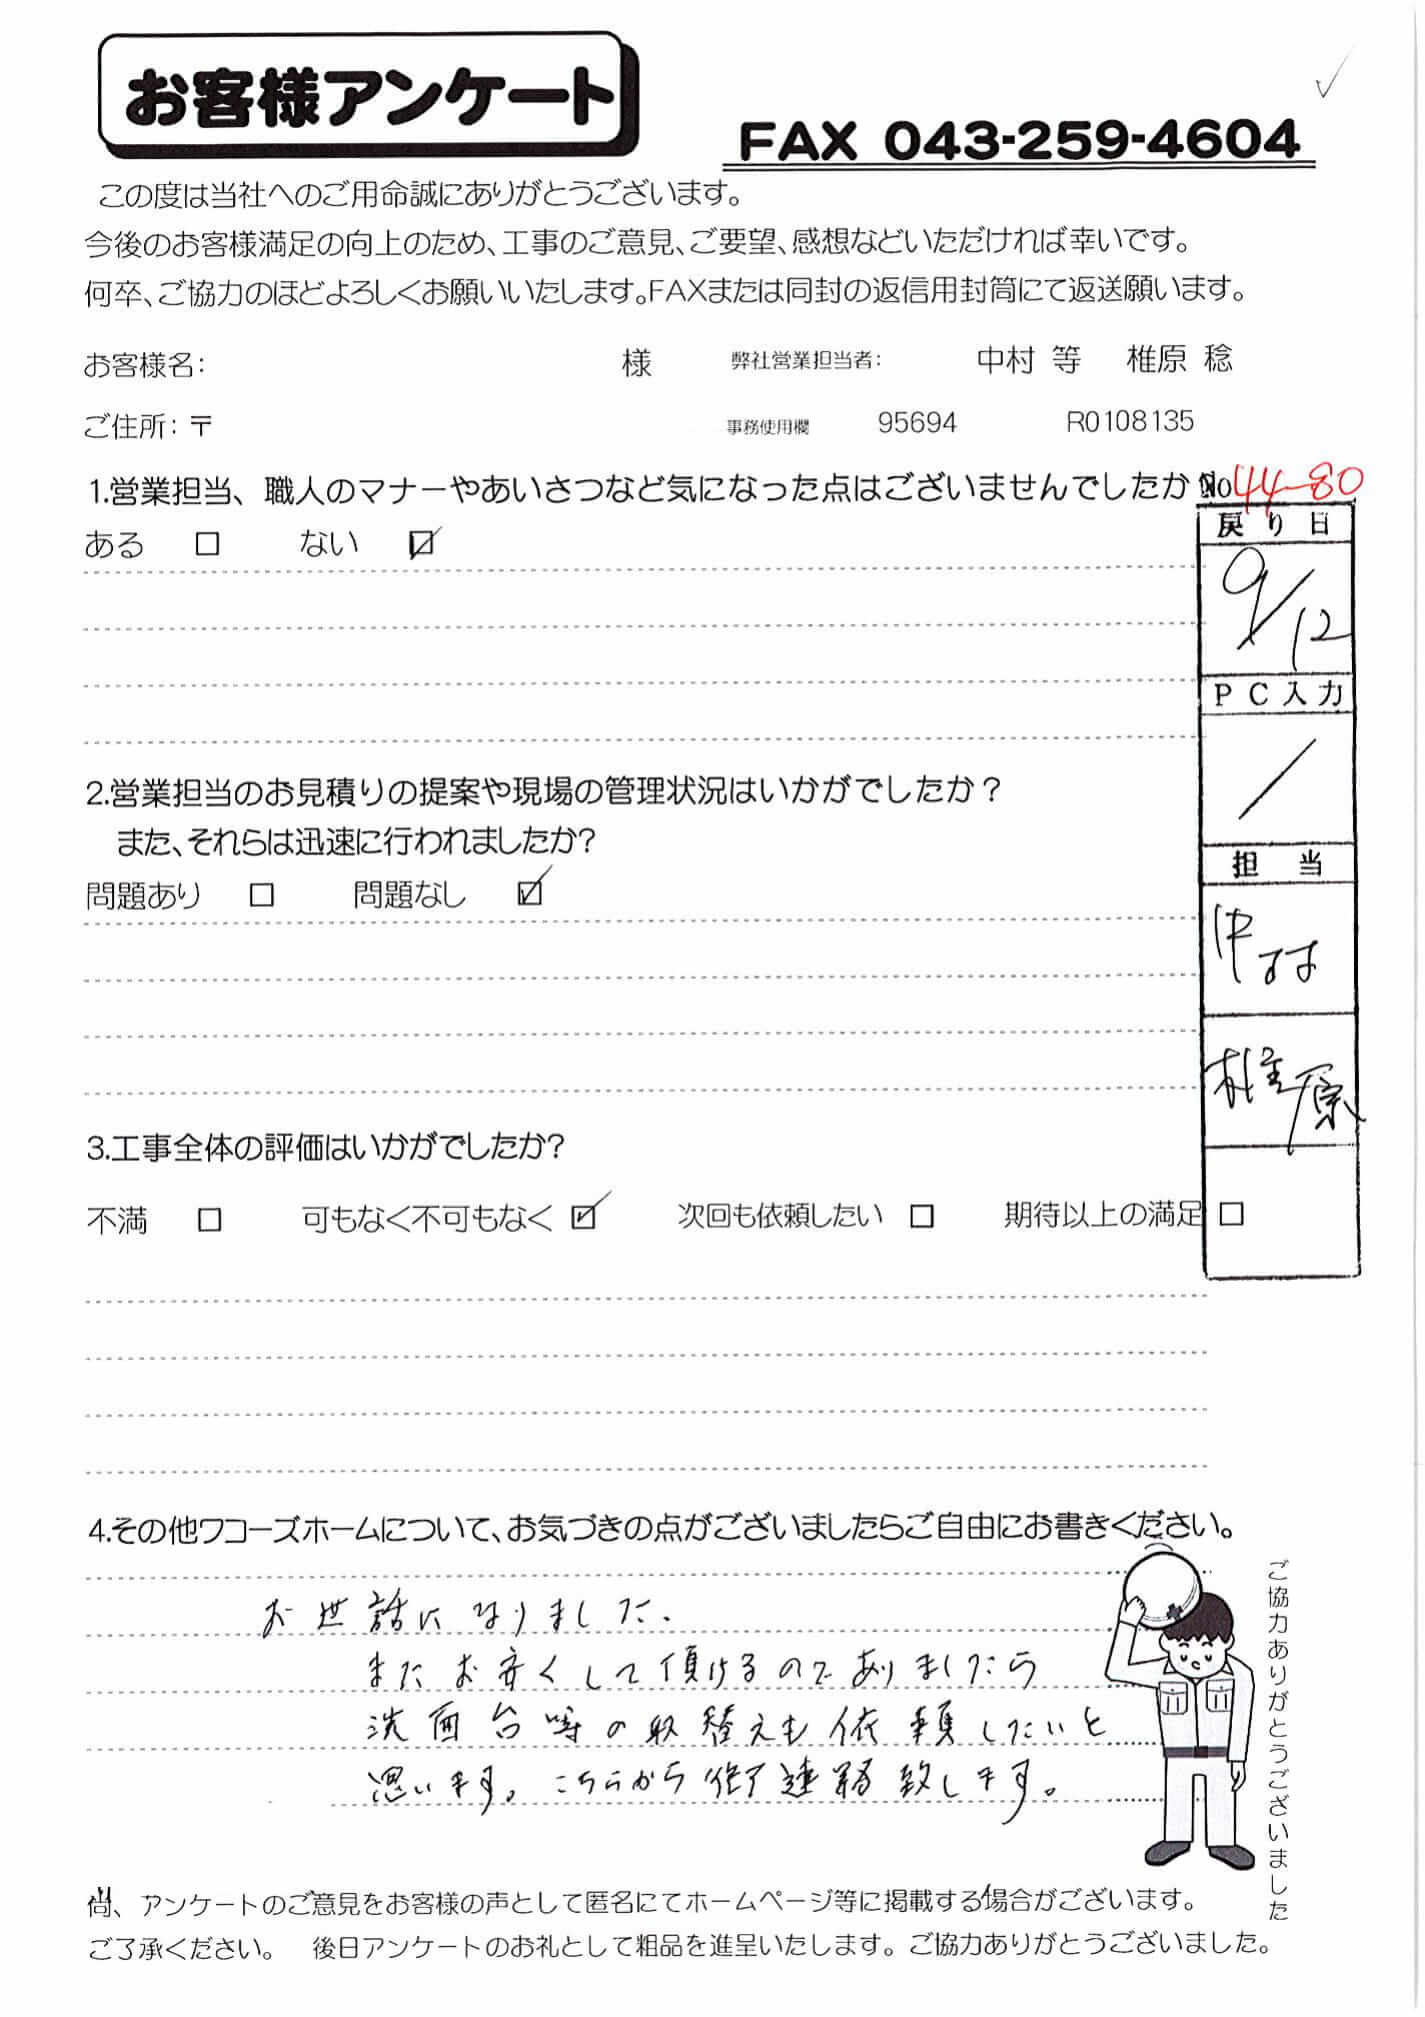 お客様アンケート
FAX 043-259-4604
この度は当社へのご用命誠にありがとうございます。
今後のお客様満足の向上のため、工事のご意見、ご要望、感想などいただければ幸いです。
何卒、ご協力のほどよろしくお願いいたします。FAXまたは同封の返信用封筒にて返送願います。
お客様名： 様 弊社営業担当者： 中村 等 椎原 稔
ご住所：〒 事務使用欄 95694 R0108135
1.営業担当、職人のマナーやあいさつなど気になった点はございませんでしたか
No 44-80
ある □ ない ☑
戻り日
9/12
PC入力
/
2.営業担当のお見積りの提案や現場の管理状況はいかがでしたか？
また、それらは迅速に行われましたか？
担当
問題あり □ 問題なし ☑
中村
椎原
3.工事全体の評価はいかがでしたか？
不満 □ 可もなく不可もなく ☑ 次回も依頼したい □ 期待以上の満足 □
4.その他ワコーズホームについて、お気づきの点がございましたらご自由にお書きください。
お世話になりました.
またお安くして頂けるのでありましたら
洗面台等の取替えも依頼したいと
思います。こちらから連絡致します。
ご協力ありがとうございました
尚、アンケートのご意見をお客様の声として匿名にてホームページ等に掲載する場合がございます。
ご了承ください。 後日アンケートのお礼として粗品を進呈いたします。ご協力ありがとうございました。